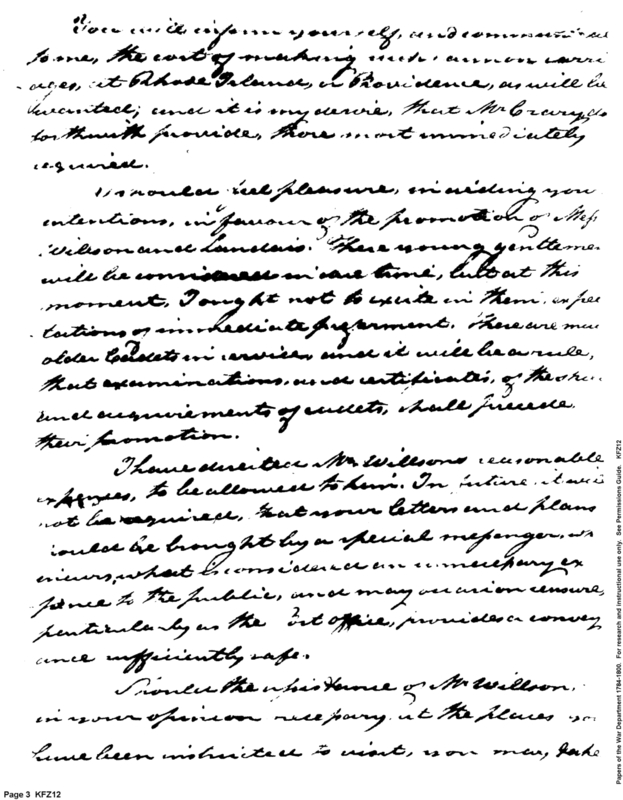 You will inform yourself, and communicate
to me, the cost of making such cannon carri
ages, at Rhode Island, or Providence, as will be
wanted; and it is my desire, that Mr Crary do
forthwith provide, those most immediately
required.
I should feel pleasure, in aiding your
intentions, in favour of the promotion of Mess
Willson and Landais. These young gentlemen
will be considered in due time, but at this
moment, I ought not to excite in them expec
tations of immediate preferment. There are many
older Cadets in service, and it will be a rule,
that examinations, and certificates, of the
and acquirements of cadets, shall precede
their promotion.
I have directed Mr Willsons reasonable
expences, to be allowed to him. In future it will
not be required, that your letters and plans
should be brought by a special messenger,
incurs, what is considered an unnecessary ex
pence to the public, and may occasion censure,
particularly as the Post office, provides a convey
ance sufficiently safe.
Should the assistance of Mr Willson,
in your opinion necessary at the places you
have been instructed to visit, you may, take
Page 3 KFZ12
Papers of the War Department 1784-1800. For research and instructional use only. See Permissions Guide. KFZ12